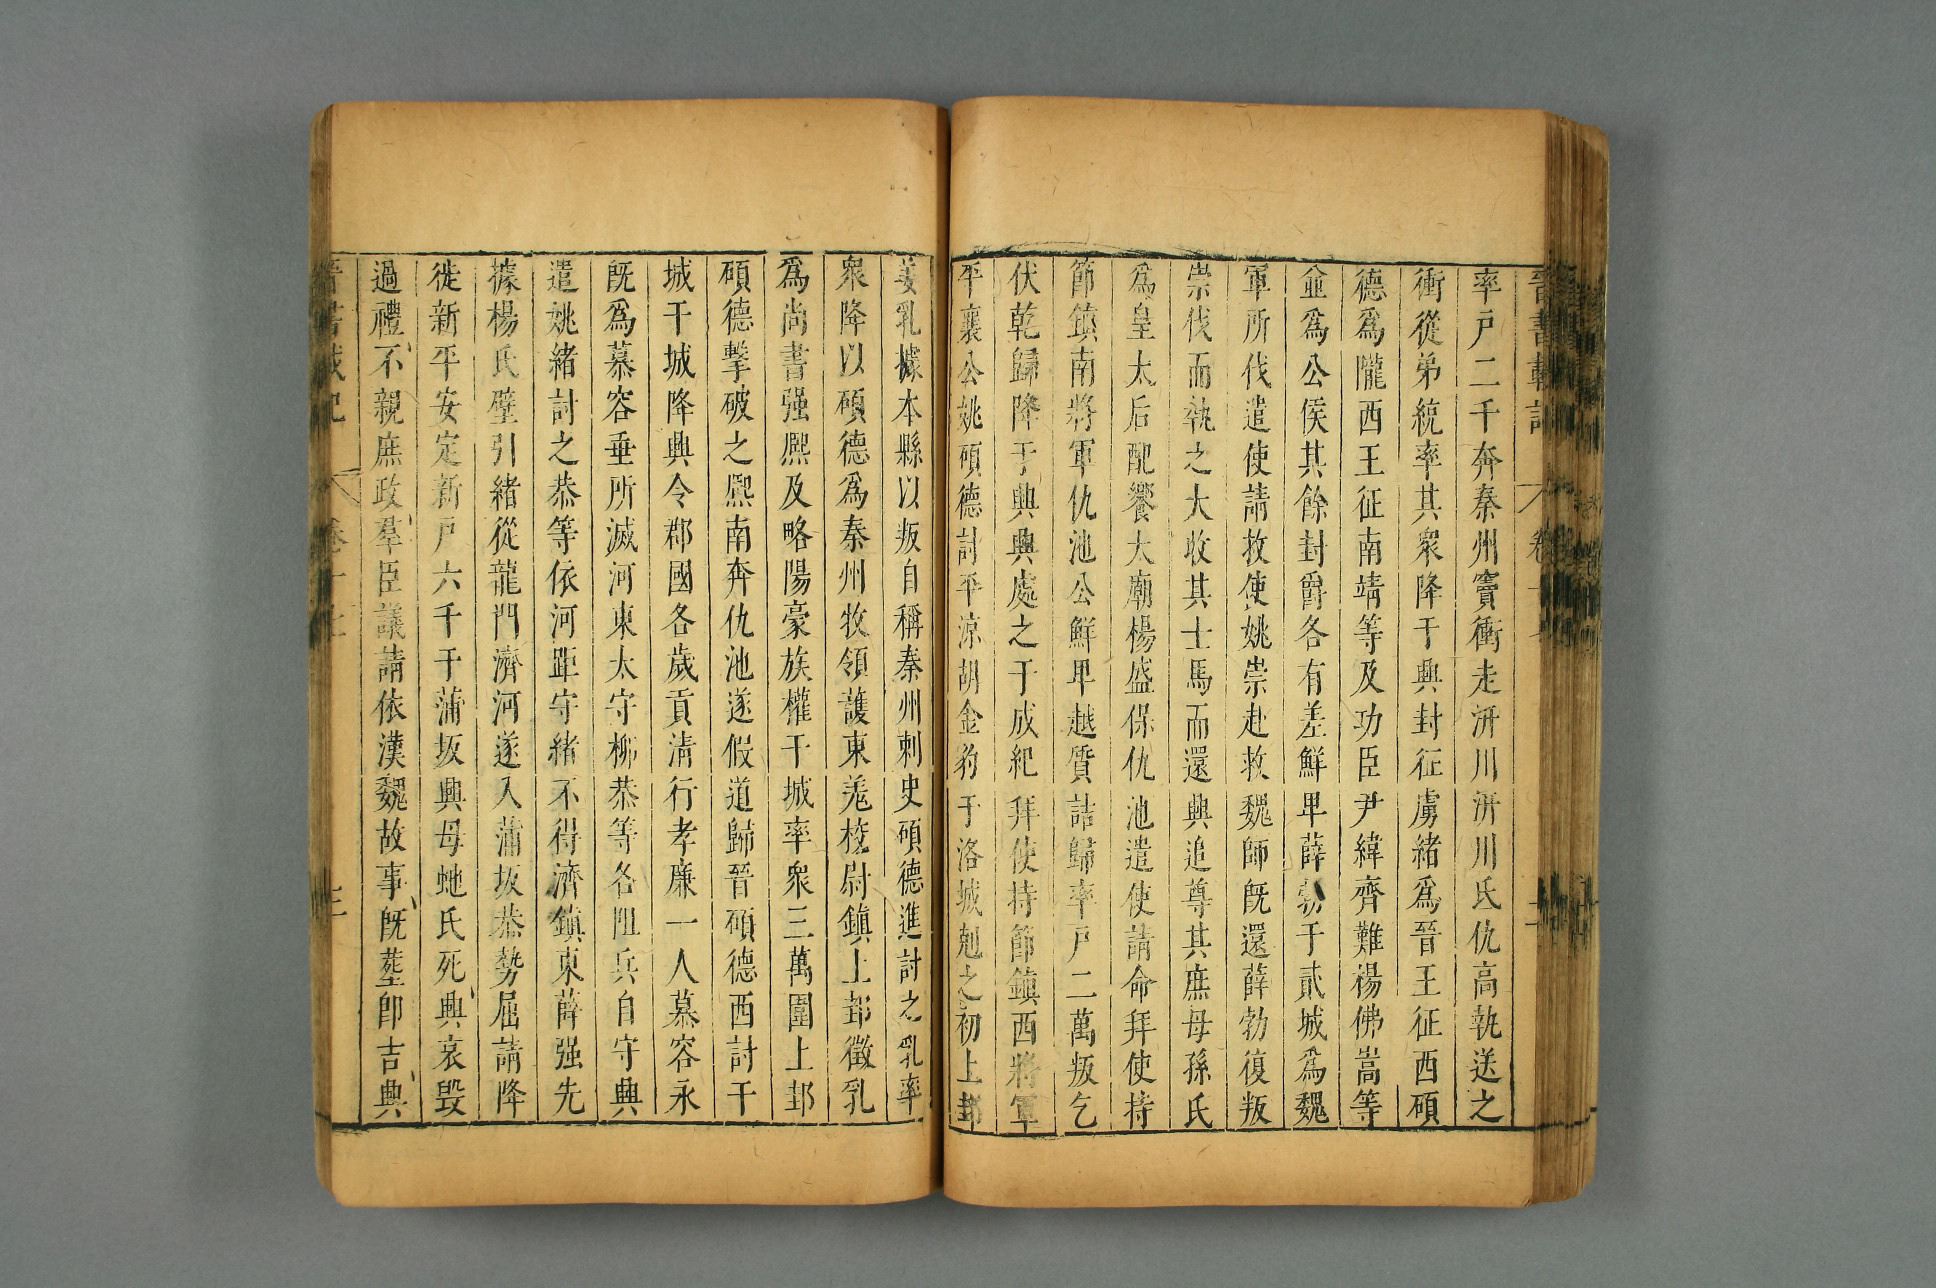 晉書載記 卷十七 二
率戶二千奔秦州竇衝走汧川汧川氐仇高執送之
衝從弟統率其衆降于興封征虜緒爲晉王征西碩
德爲隴西王征南靖等及功臣尹緯齊難楊佛嵩等
並爲公侯其餘封爵各有差鮮卑薛勃于貳城爲魏
軍所伐遣使請救使姚崇赴救魏師旣還薛勃復叛
崇伐而執之大收其士馬而還興追尊其庶母孫氏
爲皇太后配饗太廟楊盛保仇池遣使請命拜使持
節鎮南將軍仇池公鮮卑越質詰歸率戶二萬叛乞
伏乾歸降于興興處之于成紀拜使持節鎮西將軍
平襄公姚碩德討平涼胡金豹于洛城剋之初上邽
姜乳據本縣以叛自稱秦州刺史碩德進討之乳率
衆降以碩德爲秦州牧領護東羌校尉鎮上邽徵乳
爲尚書强熈及略陽豪族權干城率衆三萬圍上邽
碩德擊破之熈南奔仇池遂假道歸晉碩德西討干
城干城降興令郡國各歲貢淸行孝廉一人慕容永
旣爲慕容垂所滅河東太守柳恭等各阻兵自守興
遣姚緒討之恭等依河距守緒不得濟鎮東薛强先
據楊氏壁引緒從龍門濟河遂入蒲坂恭勢屈請降
徙新平安定新戶六千于蒲坂興母虵氏死興哀毀
過禮不親庶政羣臣議請依漢魏故事旣葬卽吉興
晉書載記 卷十七 三